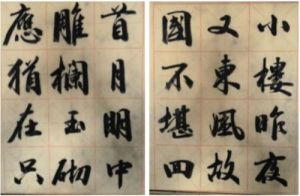 小樓昨夜
又東風故
國不堪四
首月明中
雕欄玉砌
應猶在只